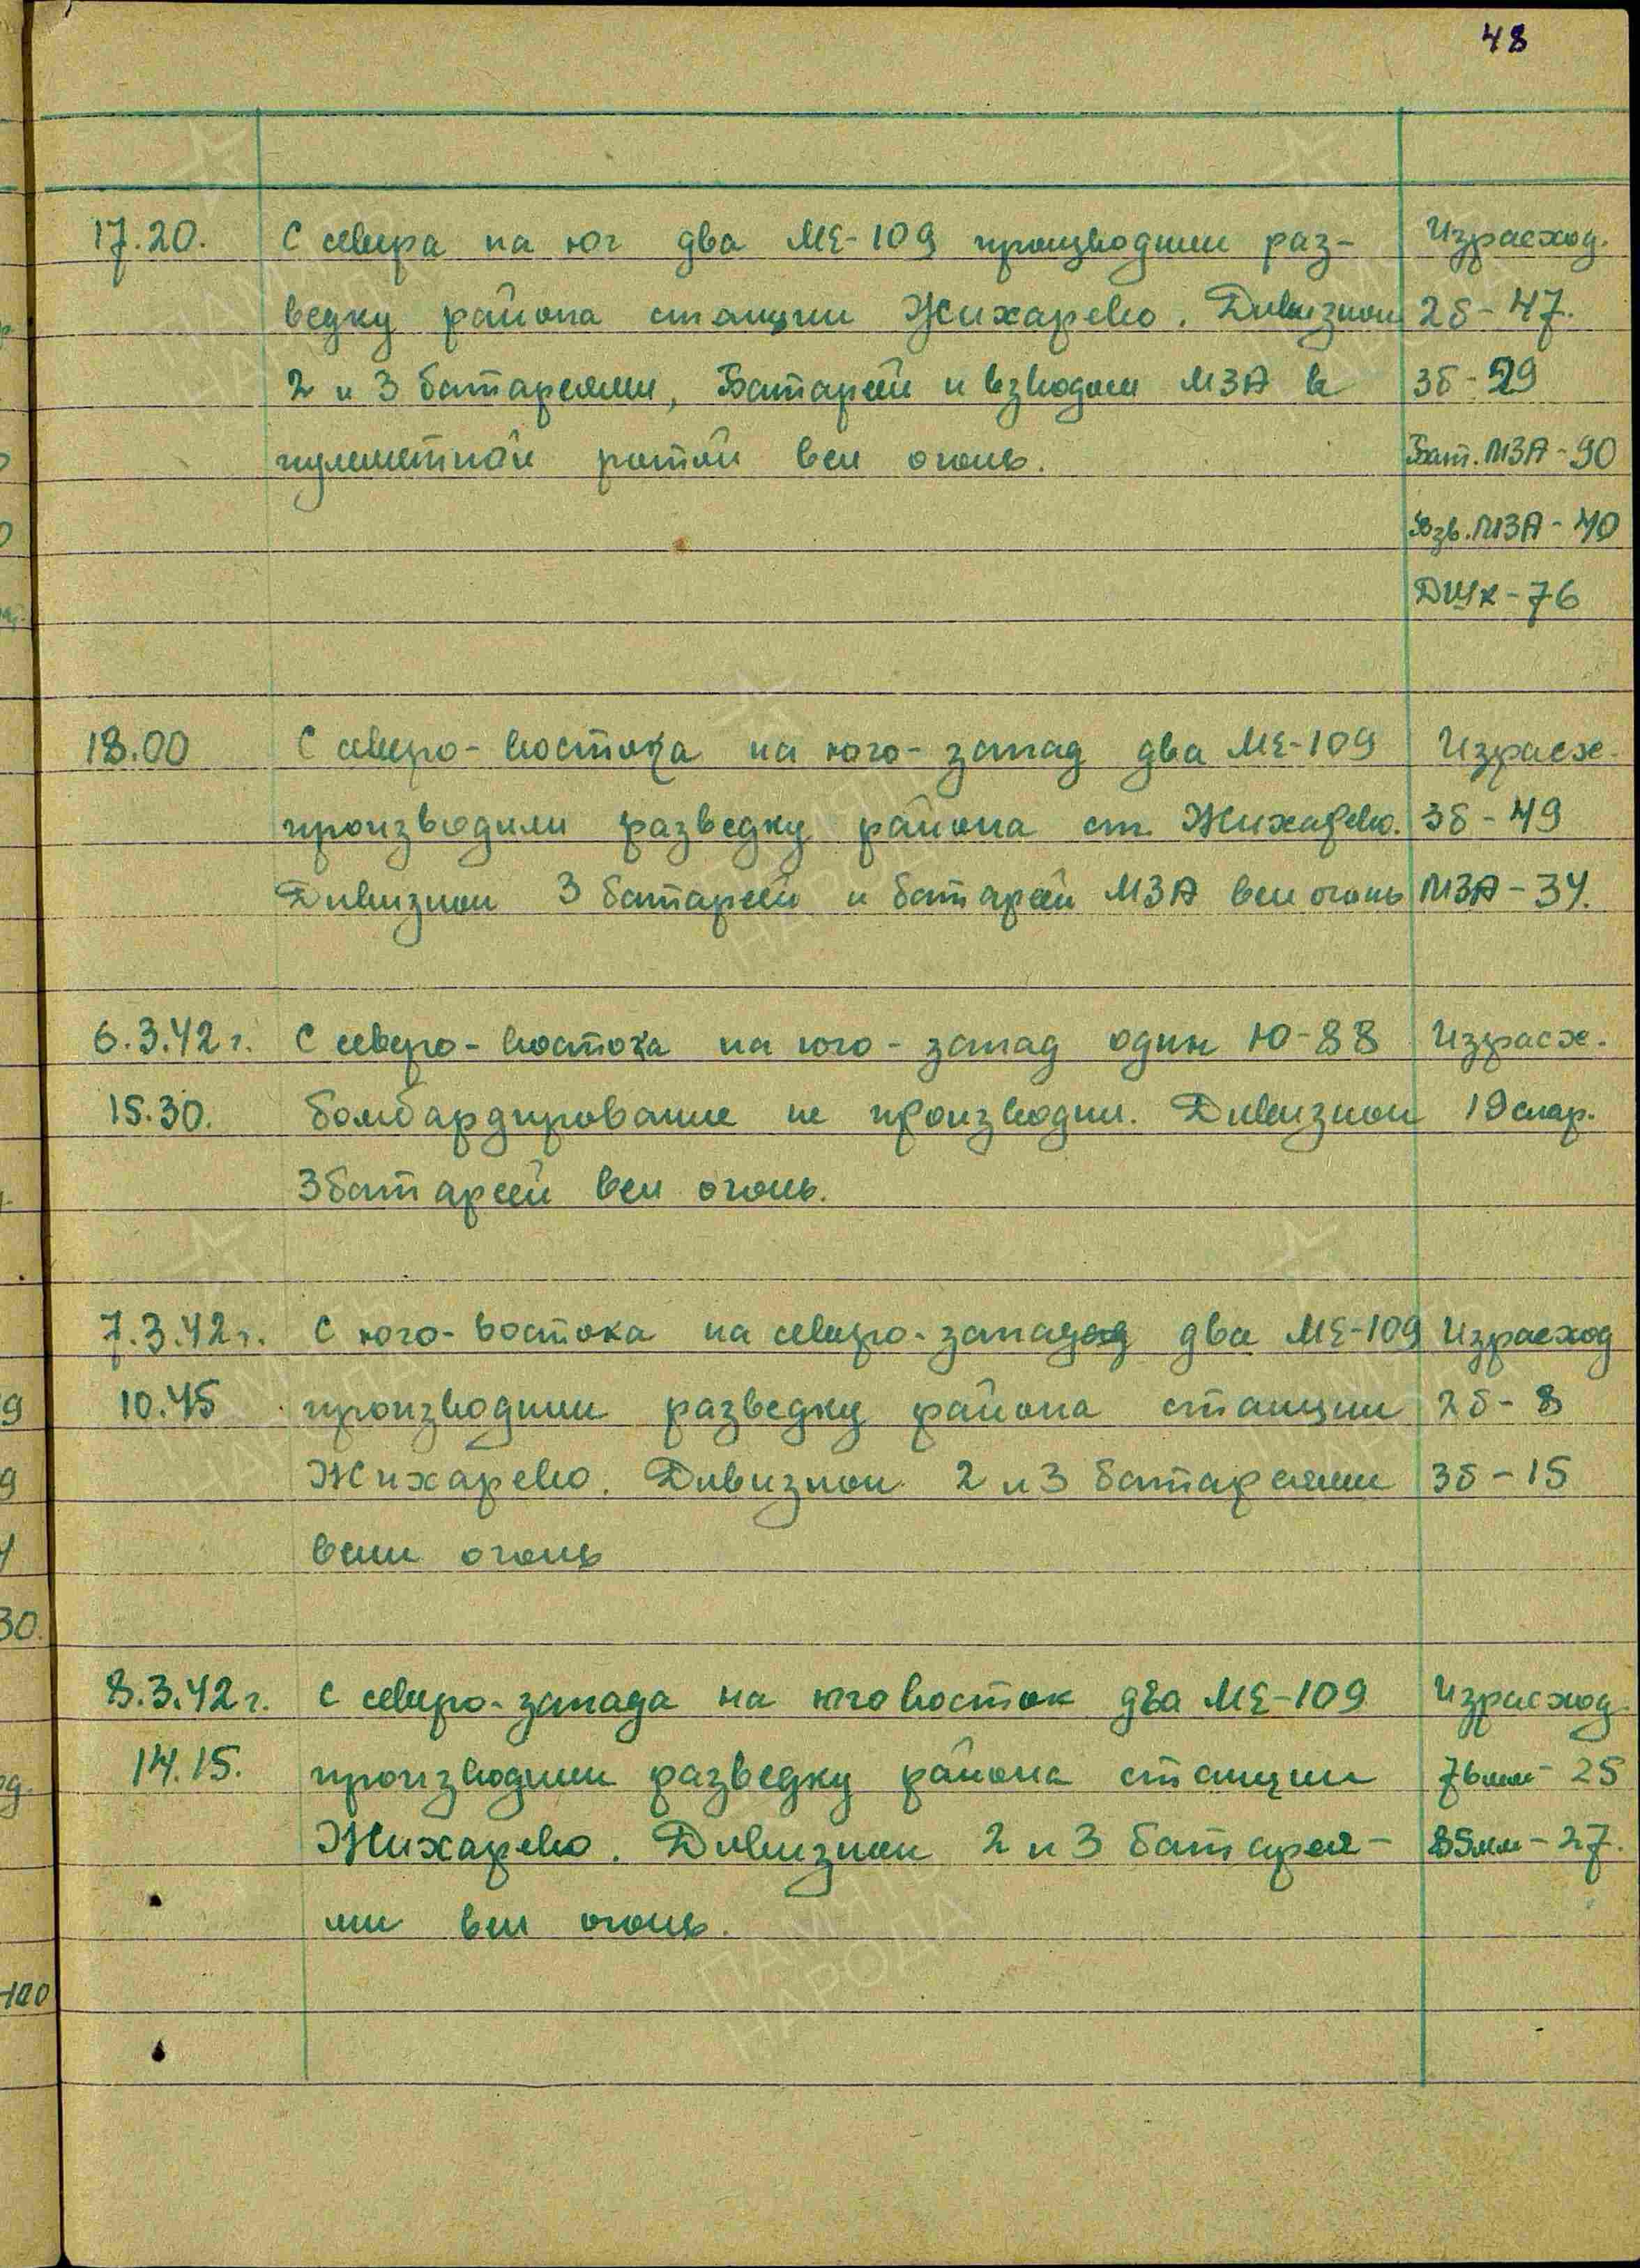 48
17.20. С севера на юг два МЕ-109 производили раз- Израсход.
ведку района станции Жихарево. Дивизион 2б-47.
2 и 3 батареями, Батареей и взводом МЗА и 3б-29
пулеметной ротой вел огонь. Бат. МЗА-90
Взв. МЗА-40
ДШК-76
18.00 С северо-востока на юго-запад два МЕ-109 Израсх.
производили разведку района ст. Жихарево. 3б-49
Дивизион 3 батареей и батареей МЗА вел огонь МЗА-34.
6.3.42г. С северо-востока на юго-запад один Ю-88 Израсх.
15.30. бомбардирование не производил. Дивизион 19 снар.
3 батареей вел огонь.
7.3.42г. С юго-востока на северо-запад два МЕ-109 Израсход
10.45 производили разведку района станции 2б-8
Жихарево. Дивизион 2 и 3 батареями 3б-15
вели огонь
8.3.42г. С северо-запада на юговосток два МЕ-109 Израсход.
14.15. производили разведку района станции 76мм-25
Жихарево. Дивизион 2 и 3 батарея- 85мм-27.
ми вел огонь.